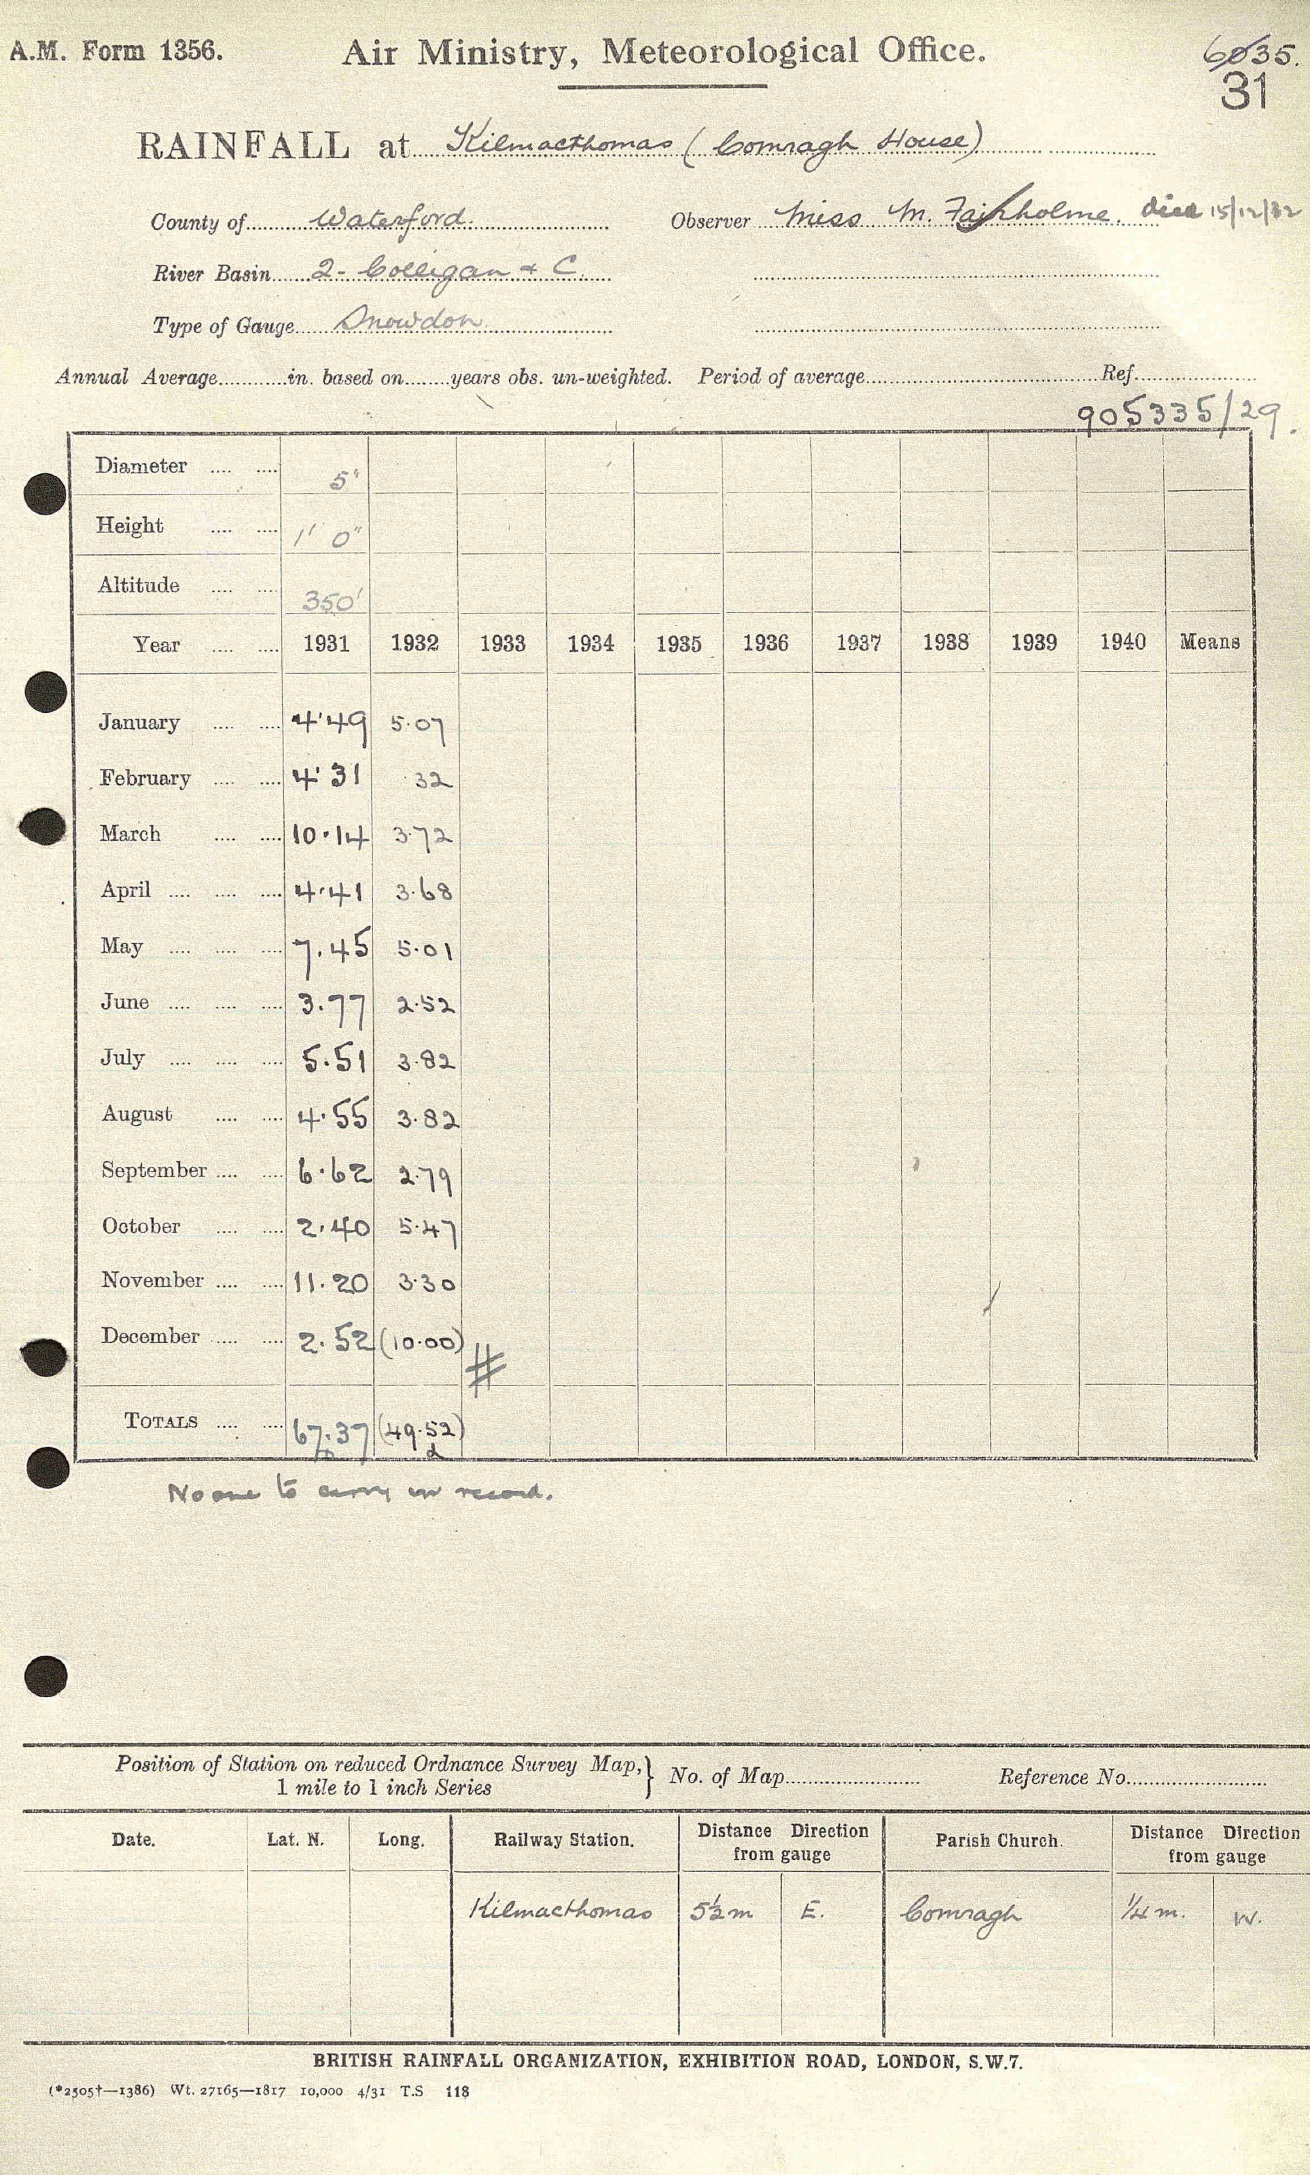 A.M. Form 1356. Air Ministry, Meteorological Office. 6035.
31
RAINFALL at Kilmacthomas (Comragh House)
County of Waterford. Observer Miss M. Fairholme. died 15/12/32
River Basin 2- Colligan + C.
Type of Gauge Snowdon
Annual Average in. based on years obs. un-weighted. Period of average Ref.
905335/29.
Diameter 5"
Height 1' 0"
Altitude 350'
Year 1931 1932 1933 1934 1935 1936 1937 1938 1939 1940 Means
January 4.49 5.07
February 4.31 .32
March 10.14 3.72
April 4.41 3.68
May 7.45 5.01
June 3.77 2.52
July 5.51 3.82
August 4.55 3.82
September 6.62 2.79
October 2.40 5.47
November 11.20 3.30
December 2.52 (10.00)
TOTALS 67.37 (49.52)
No one to carry on record.
Position of Station on reduced Ordnance Survey Map, } No. of Map Reference No.
1 mile to 1 inch Series
Date. Lat. N. Long. Railway Station. Distance Direction Parish Church. Distance Direction
from gauge from gauge
Kilmacthomas 5½m E. Comragh ¼ m. W.
BRITISH RAINFALL ORGANIZATION, EXHIBITION ROAD, LONDON, S.W.7.
(*2505†—1386) Wt. 27165—1817 10,000 4/31 T.S 118